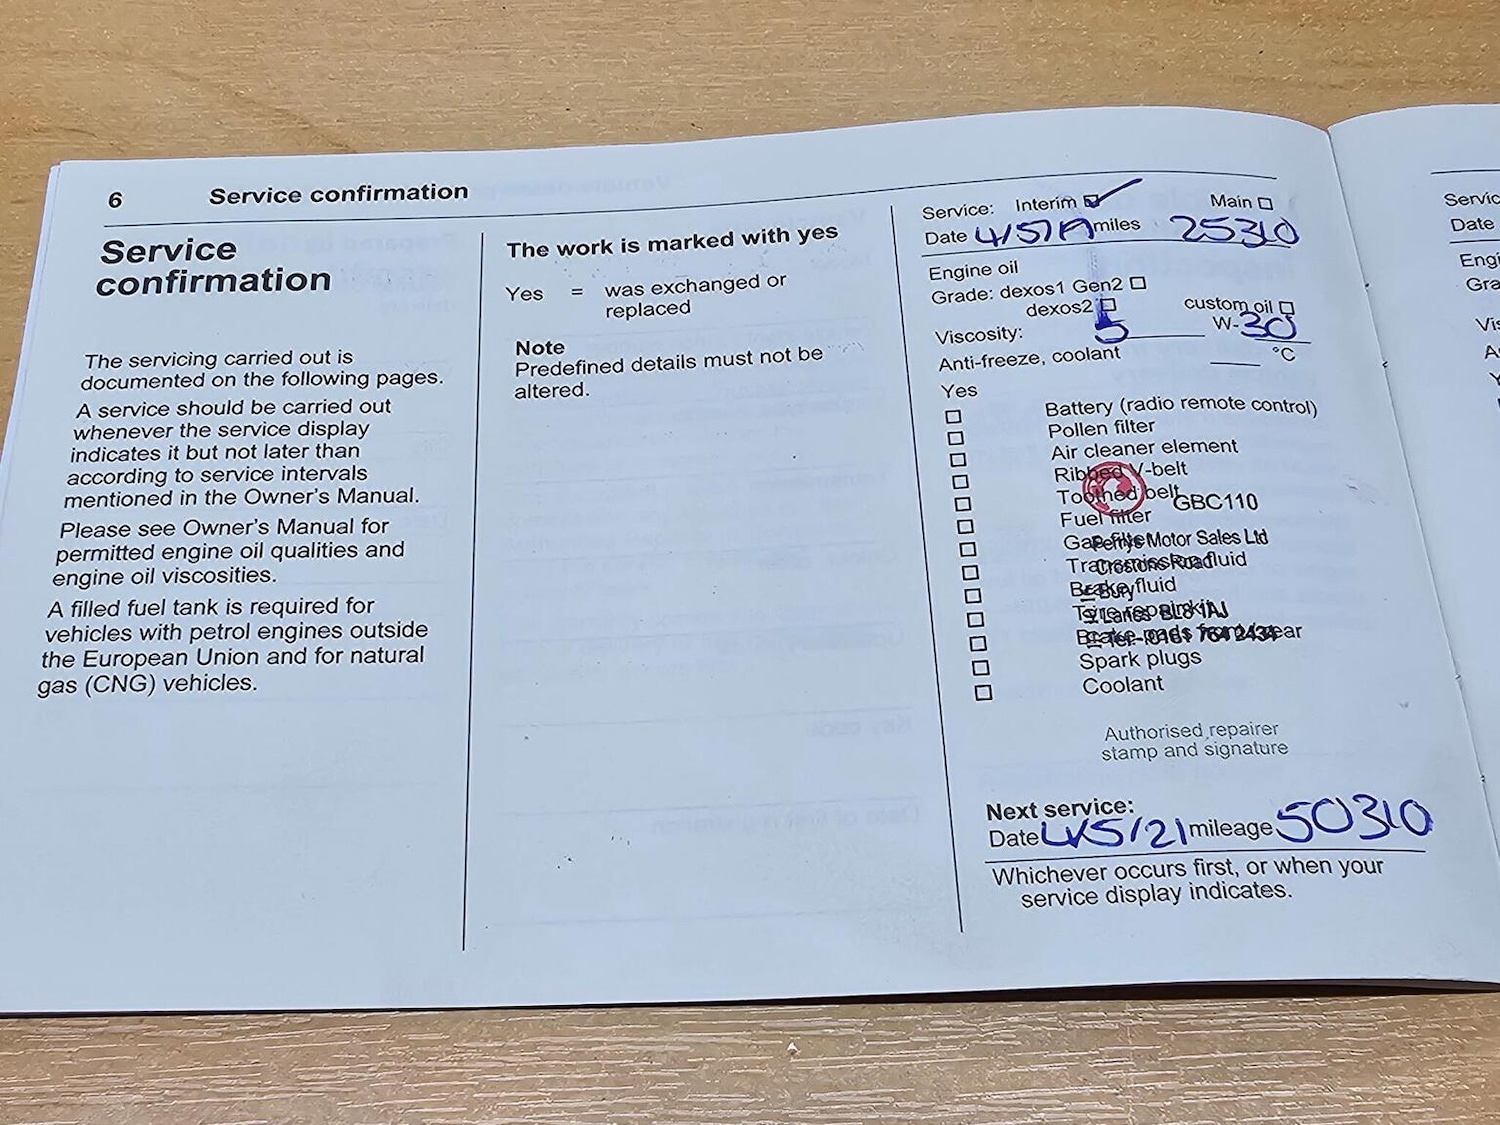 6 Service confirmation
Service
confirmation
The servicing carried out is
documented on the following pages.
A service should be carried out
whenever the service display
indicates it but not later than
according to service intervals
mentioned in the Owner's Manual.
Please see Owner's Manual for
permitted engine oil qualities and
engine oil viscosities.
A filled fuel tank is required for
vehicles with petrol engines outside
the European Union and for natural
gas (CNG) vehicles.
The work is marked with yes
Yes = was exchanged or
replaced
Note
Predefined details must not be
altered.
Service: Interim Main
Date miles 25310
Engine oil
Grade: dexos1 Gen2
dexos2 custom oil
Viscosity: 5 W-30
Anti-freeze, coolant °C
Yes
Battery (radio remote control)
Pollen filter
Air cleaner element
Ribbed V-belt
Toothed belt
GBC110
Fuel filter
Gas filter
Perrys Motor Sales Ltd
Transmission fluid
Crostons Road
Brake fluid
Bury
Tyre repair kit
Lancs BL8 1AJ
Brake pads front/rear
Tel: 0161 764 2434
Spark plugs
Coolant
Authorised repairer
stamp and signature
Next service:
Date 4/5/21 mileage 50310
Whichever occurs first, or when your
service display indicates.
Servic
Date
Engi
Gra
Vis
A
Y